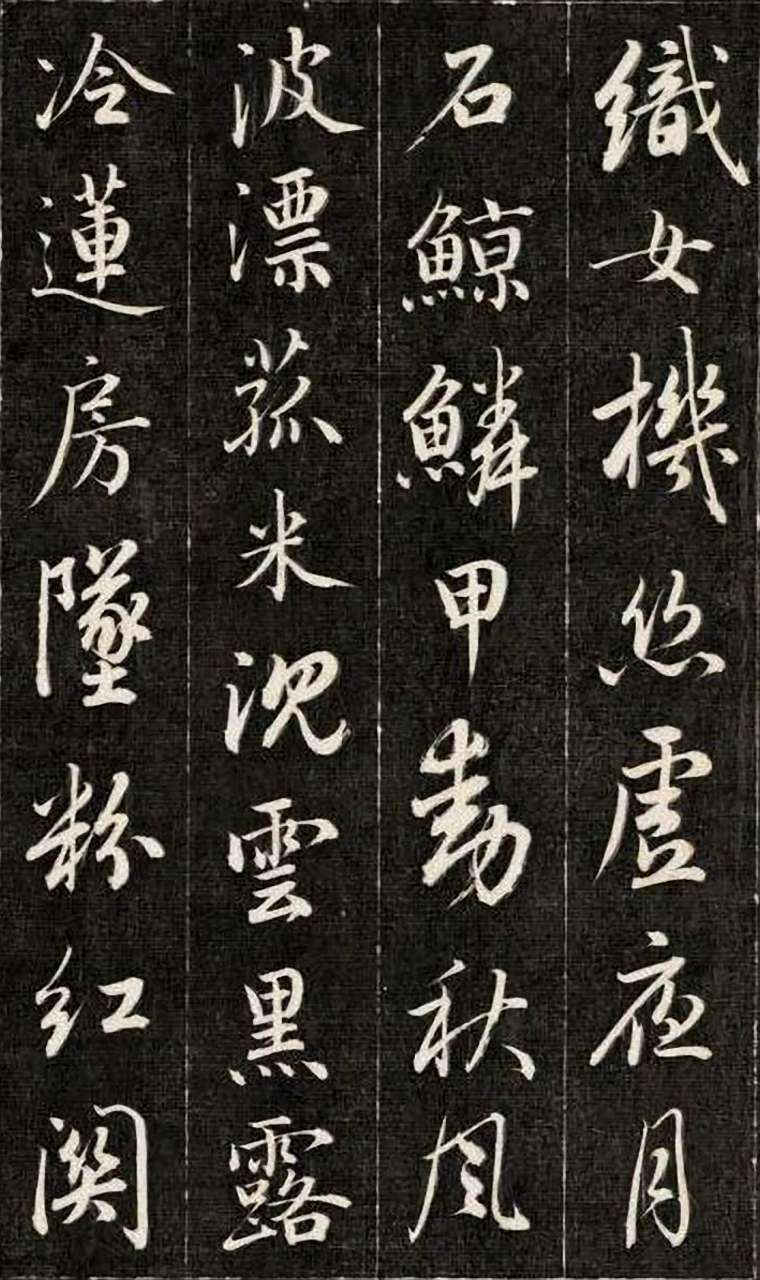 織女機絲虛夜月
石鯨鱗甲動秋風
波漂菰米沉雲黑露
冷蓮房墜粉紅關